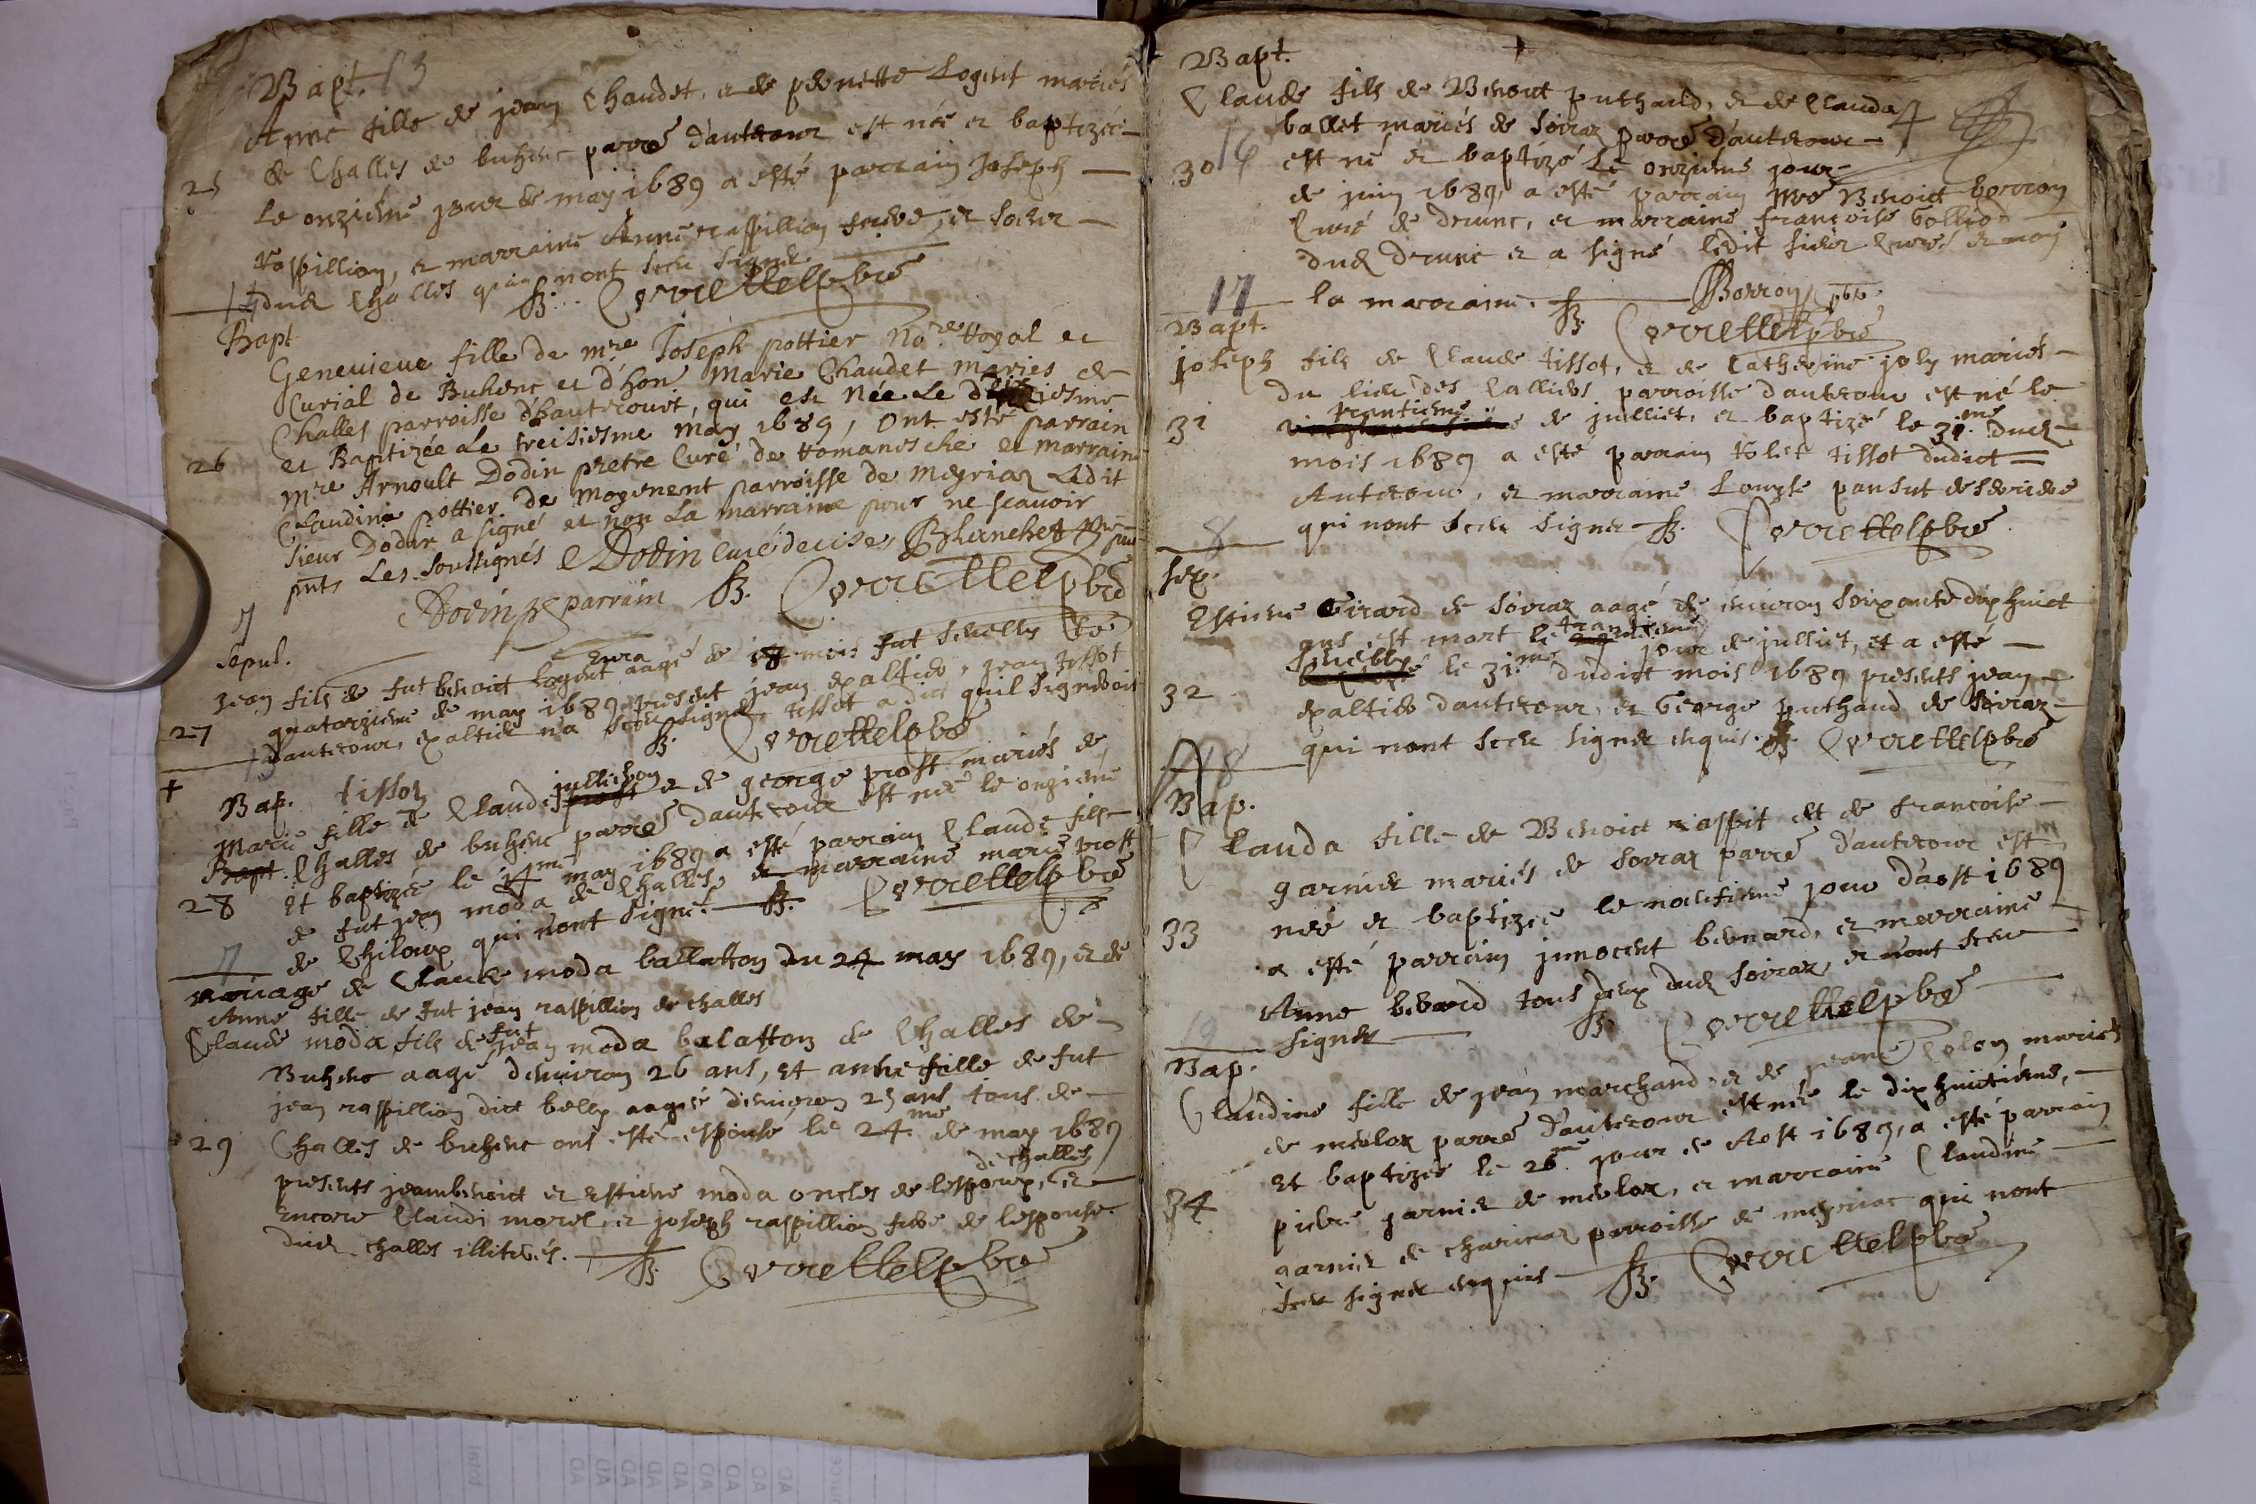 Bapt. 13
Anne fille de jean Chaudet, et de pernette Logent mariés
de Challes de buhenc parr.e d'autecour est née et baptizée
25
le onzième jour de may 1689 a esté parrain Joseph
raspillion, et marraine Anne raspillion frere et soeur
dud Challes qui nont sceu signer
Cerrettel pbre
14
Bapt
Genevieve fille de m.re Joseph pottier No.re Royal et
Curial de Buhenc et d'hon. Marie Chaudet mariés de
Challes parroisse d'hautecourt, qui est Née Le
et Baptizée Le treisiesme May 1689, Ont esté parrain
26
M.re Arnoult Dodin pretre Curé de Romanesche et marraine
Claudine pottier de Mogenent parroisse de Meyriaz Ledit
sieur Dodin a signé et non La marraine pour ne scavoir
pnts Les soussignés Dodin curé de Blanchet
Dodin parrain Cerrettel pbre
7
Sepul.
Curé
jean fils de fut benoict Logent aagé de 18 mois fut sevelly le
quatorzieme de may 1689 present jean exaltier, jean tissot
27
d'autecour, exaltier n'a sceu signer tissot a dit quil signeroit
15
Cerrettel pbre
+
Bap. tissot
jullichon
Marie fille de Claude prost et de george prost mariés de
Bapt. Challes de buhenc parr.e d'autecour est née le onzieme
28
Et baptizée le 14.me may 1689 a esté parrain Claude fils
de fut jean moda de Challes, et marraine marie prost
de Chiloup qui nont signé. Cerrettel pbre
7
mariage de Claude moda ballatton du 24 may 1689, et de
Anne fille de fut jean raspillion de challes
Claude moda fils de fut jean moda balatton de Challes de
Buhenc aagé denviron 26 ans, et anne fille de fut
jean raspillion dict belly aagée denviron 25 ans tous de
29
Challes de buhenc ont esté espousé le 24.me de may 1689
de challes
presents jeambenoict et Estiene moda oncles de lespoux, et
encore Claudi morel, et joseph raspillion frere de lespouse
dud. challes illiterés. Cerrettel pbre
Bapt.
Claude fils de Benoict puthaud, et de Clauda
ballet mariés de soiraz parr.e d'autecour
30
16
est né et baptizé le onzieme jour
de juin 1689, a esté parrain M.re Benoict borron
Curé de druint, et marraine françoise Gollion
dud druint et a signé ledit sieur Curé et non
17
la marraine. Borron pbre
Cerrettel pbre
Bapt.
joseph fils de Claude tissot, et de Catherine joly mariés
du lieu des Calliers parroisse dautecour est né le
trentieme
31
de julliet, et baptizé le 31.me dud
mois 1689 a esté parrain Rolet tissot dudict
Autecour, et marraine Louyse pansut de
qui nont sceu signer Cerrettel pbre
8
sep.
Estiene Girard de soiraz aagé de environ soixante dixhuict
ans est mort le trantieme jour de julliet, et a esté
sevelly
le 31.me dudict mois 1689 presents jean
32
exaltier dautecour, et George puthaud de soiraz
qui nont sceu signer enquis. Cerrettel pbre
18
Bap.
Clauda fille de Benoict raspit et de francoise
garnier mariés de soiraz parr.e d'autecour est
33
née et baptizée le noufieme jour d'aost 1689
a esté parrain jnnocent bernard, et marraine
Anne berard tous deux dud soiraz, et nont sceu
signer Cerrettel pbre
19
Bap.
Claudine fille de jean marchand et de jeane Colon mariés
de meloz parr.e d'autecour est née le dix huictieme,
Et baptizée le 26.me jour de Aost 1689, a esté parrain
34
pierre garnier de meloz, et marraine Claudine
garnier de chariaz parroisse de meyriat qui nont
sceu signer enquis Cerrettel pbre